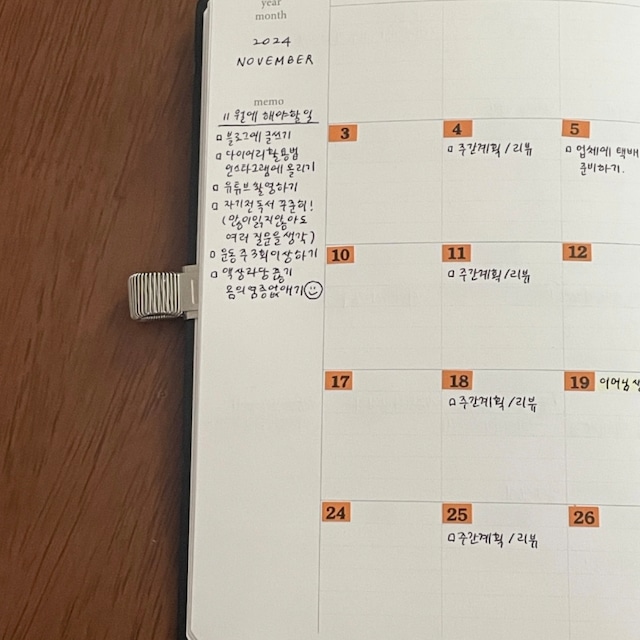 year
month
2024
NOVEMBER
memo
11월에 해야할 일
□ 블로그에 글쓰기
□ 다이어리 활용법
인스타그램에 올리기
□ 유튜브 촬영하기
□ 자기전 독서 꾸준히!
(많이 읽지 않아도
여러 질문을 생각)
□ 운동 주3회 이상하기
□ 액상과당 줄이기
몸의 염증 없애기☺
3
4
5
□ 주간계획 / 리뷰
□ 업체에 택배
준비하기.
10
11
12
□ 주간계획 / 리뷰
17
18
19
□ 주간계획 / 리뷰
24
25
26
□ 주간계획 / 리뷰